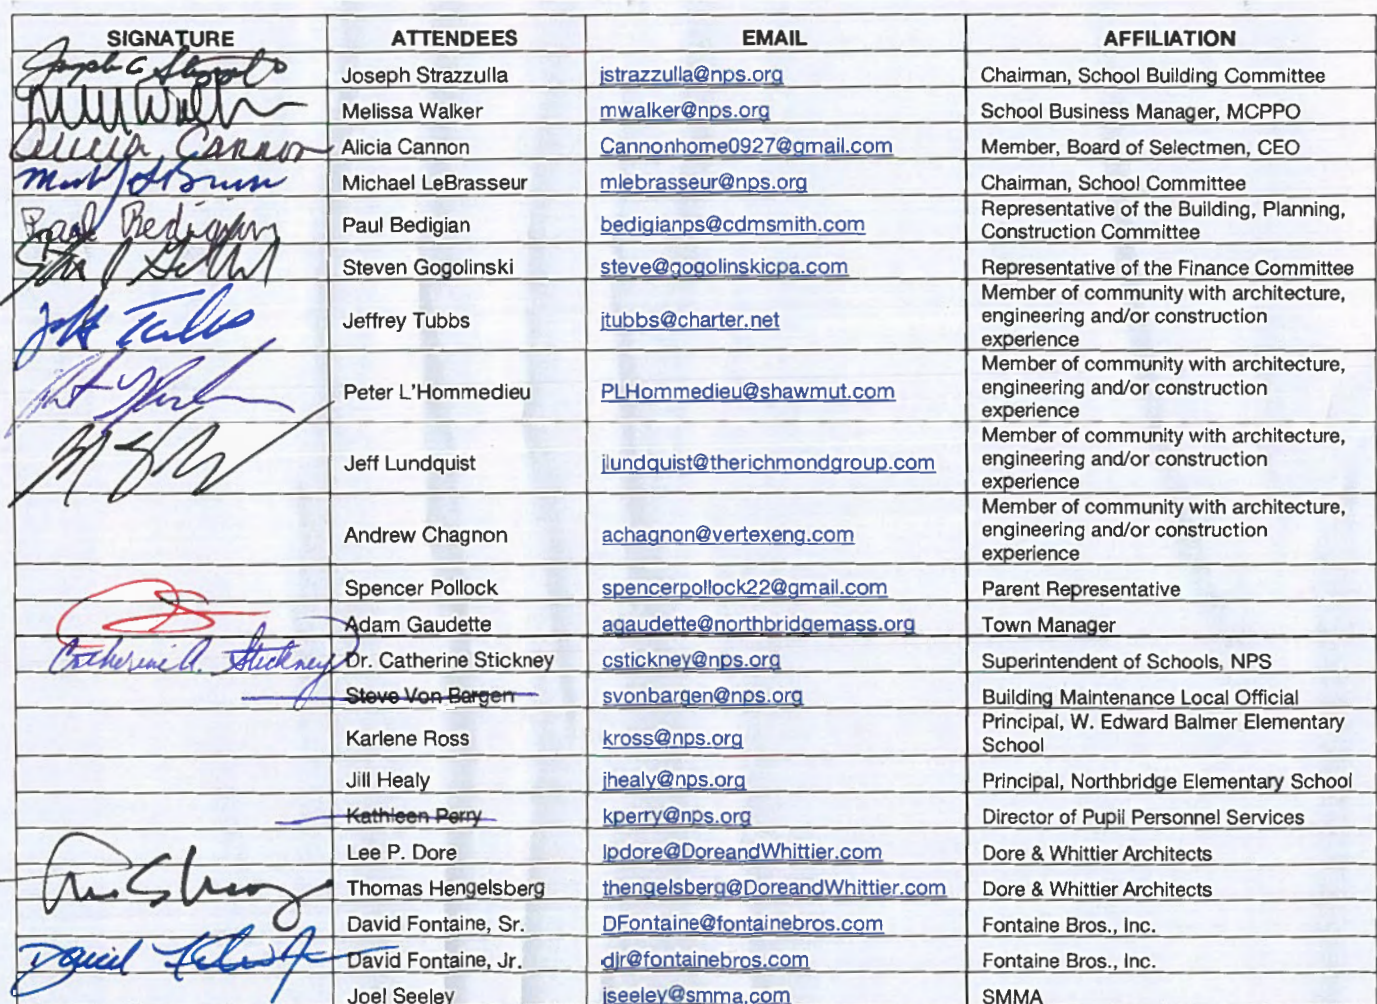 SIGNATURE ATTENDEES EMAIL AFFILIATION
Joseph Strazzulla jstrazzulla@nps.org Chairman, School Building Committee
Melissa Walker mwalker@nps.org School Business Manager, MCPPO
Alicia Cannon Alicia Cannon Cannonhome0927@gmail.com Member, Board of Selectmen, CEO
Michael LeBrasseur mlebrasseur@nps.org Chairman, School Committee
Paul Bedigian Paul Bedigian bedigianps@cdmsmith.com Representative of the Building, Planning,
Construction Committee
Steven Gogolinski steve@gogolinskicpa.com Representative of the Finance Committee
Member of community with architecture,
Jeff Tubbs Jeffrey Tubbs jtubbs@charter.net engineering and/or construction
experience
Member of community with architecture,
Peter L'Hommedieu PLHommedieu@shawmut.com engineering and/or construction
experience
Member of community with architecture,
Jeff Lundquist jlundquist@therichmondgroup.com engineering and/or construction
experience
Member of community with architecture,
Andrew Chagnon achagnon@vertexeng.com engineering and/or construction
experience
Spencer Pollock spencerpollock22@gmail.com Parent Representative
Adam Gaudette agaudette@northbridgemass.org Town Manager
Catherine A. Stickney Dr. Catherine Stickney cstickney@nps.org Superintendent of Schools, NPS
Steve Von Bargen svonbargen@nps.org Building Maintenance Local Official
Karlene Ross kross@nps.org Principal, W. Edward Balmer Elementary
School
Jill Healy jhealy@nps.org Principal, Northbridge Elementary School
Kathleen Perry kperry@nps.org Director of Pupil Personnel Services
Lee P. Dore lpdore@DoreandWhittier.com Dore & Whittier Architects
Thomas Hengelsberg thengelsberg@DoreandWhittier.com Dore & Whittier Architects
David Fontaine, Sr. DFontaine@fontainebros.com Fontaine Bros., Inc.
David David Fontaine, Jr. djr@fontainebros.com Fontaine Bros., Inc.
Joel Seeley jseeley@smma.com SMMA